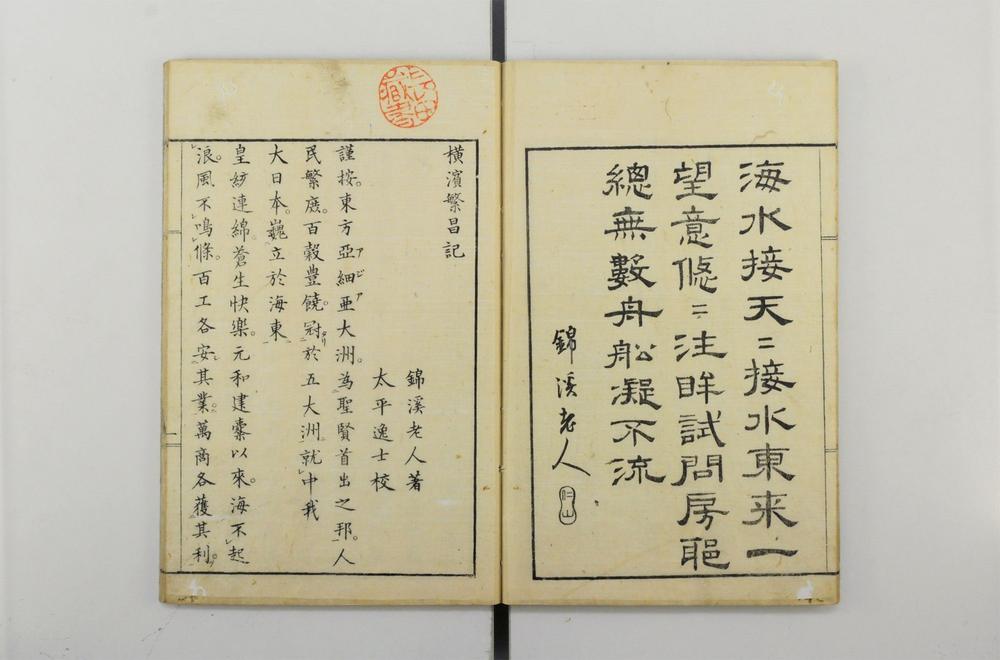 海水接天〻接水東来一
望意悠〻注眸試問房
總無數舟船凝不流
錦溪老人
横濱繁昌記
錦溪老人著
太平逸士校
謹按。東方亞細亜大洲。為聖賢首出之邦。人
アジア
民繁庶。百穀豊饒。冠於五大洲。就中我
大日本。巍立於海東
皇紡連綿。蒼生快樂。元和建櫜以來。海不起
浪。風不鳴條。百工各安其業。萬商各獲其利。